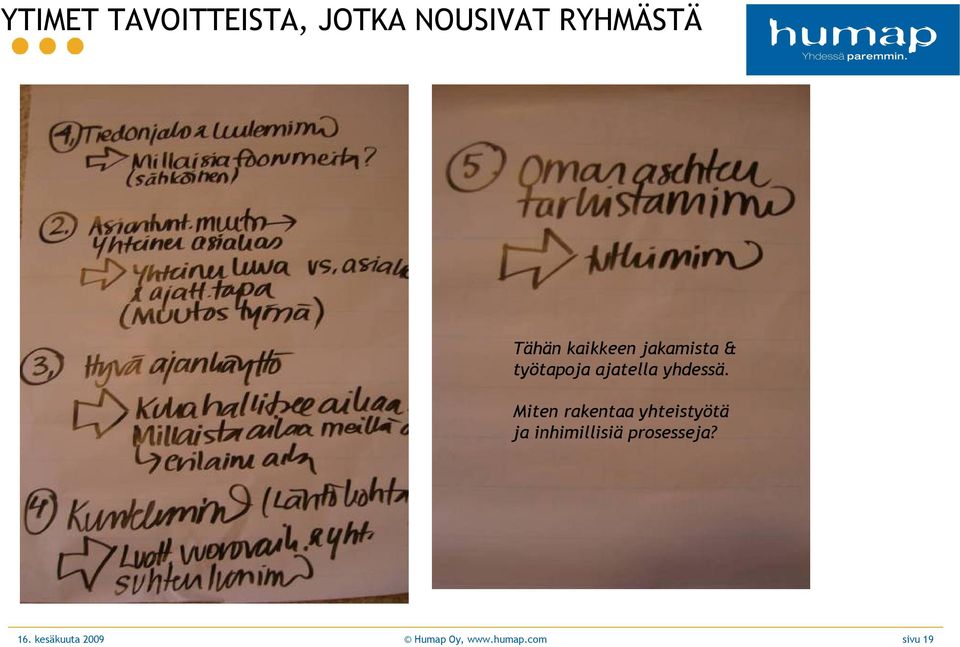 YTIMET TAVOITTEISTA, JOTKA NOUSIVAT RYHMÄSTÄ
humap
Yhdessä paremmin.
1,) Tiedonjako &
Millaisia foorumeita?
(sähköinen)
2. Asiantunt. muutn →
Yhteinen asiakas
Yhteinen kuva vs. asiak
& ajatt.tapa
(Muutos tymä)
3, Hyvä ajankäyttö
Kuka hallitsee aikaa
Millaista aikaa meillä o
erilainen
4) (Lähtökohta
Luott vuorovaik. & yht.
5. Oman
Tähän kaikkeen jakamista &
työtapoja ajatella yhdessä.
Miten rakentaa yhteistyötä
ja inhimillisiä prosesseja?
16. kesäkuuta 2009
© Humap Oy, www.humap.com
sivu 19